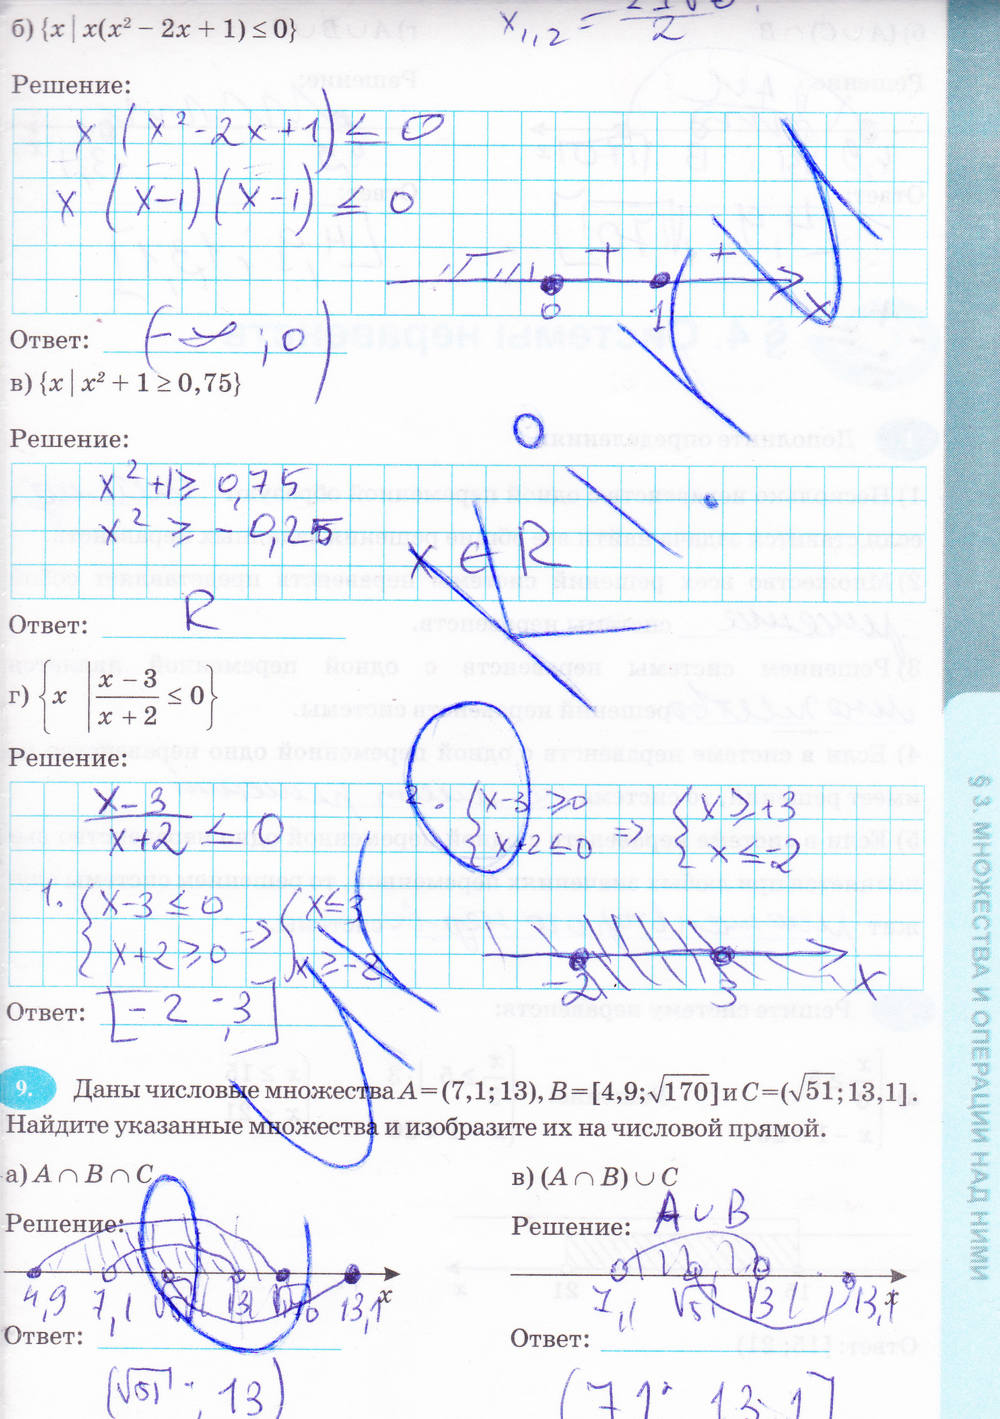 б) {x | x(x² − 2x + 1) ≤ 0}
x₁,₂ =
Решение:
x (x² - 2x + 1) ≤ 0
x (x-1) (x-1) ≤ 0
+ +
0 1 x
Ответ: (-∞, 0)
в) {x | x² + 1 ≥ 0,75}
Решение:
x² + 1 ≥ 0,75
x² ≥ - 0,25
x ∈ R
Ответ: R
г) {x | (x − 3)/(x + 2) ≤ 0}
Решение:
(x-3)/(x+2) ≤ 0
2. {x-3 ≥ 0 => {x ≥ +3
{x+2 ≤ 0 {x ≤ -2
1. {x-3 ≤ 0 => {x ≤ 3
{x+2 ≥ 0 {x ≥ -2
-2 3 x
Ответ: [-2, 3]
9. Даны числовые множества A = (7,1; 13), B = [4,9; √170] и C = (√51; 13,1].
Найдите указанные множества и изобразите их на числовой прямой.
а) A ∩ B ∩ C
в) (A ∩ B) ∪ C
Решение:
Решение: A ∪ B
4,9 7,1 √51 13 √170 13,1 x
7,1 √51 13 13,1 x
Ответ:
Ответ:
(√51; 13)
(7,1; 13,1]
§ 3. МНОЖЕСТВА И ОПЕРАЦИИ НАД НИМИ